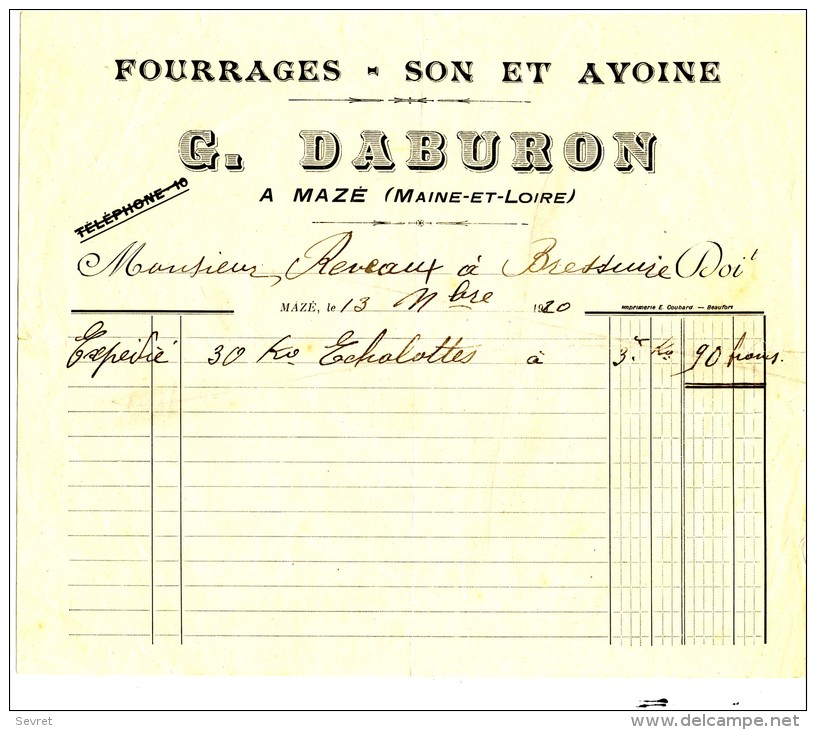 FOURRAGES - SON ET AVOINE
G. DABURON
A MAZÉ (MAINE-ET-LOIRE)
TÉLÉPHONE 10
Monsieur Reveaux à Bressuire Doit
MAZÉ, le 13 Nbre 1920
Imprimerie E. Coubard. — Beaufort
Expédié 30 Ko Echalottes à 3f. Ko 90 francs.
Sevret
delcampe.net